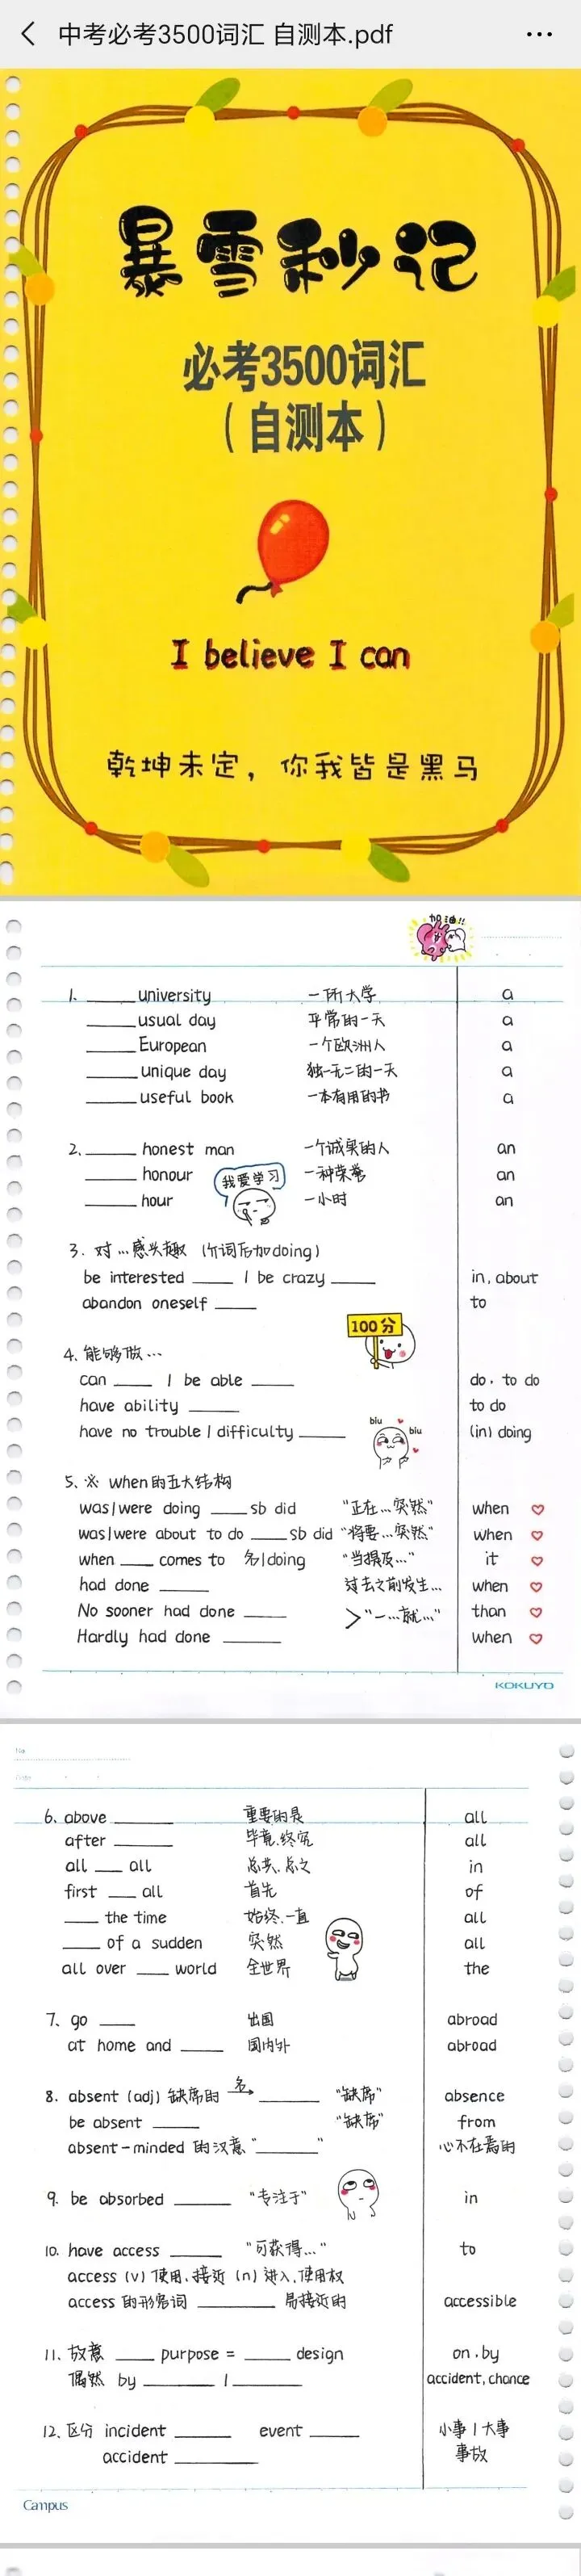 中考必考3500词汇 自测本.pdf
暴雪秒记
必考3500词汇
（自测本）
I believe I can
乾坤未定，你我皆是黑马
加油!!
1. ______ university 一所大学 a
______ usual day 平常的一天 a
______ European 一个欧洲人 a
______ unique day 独一无二的一天 a
______ useful book 一本有用的书 a
2. ______ honest man 一个诚实的人 an
______ honour 一种荣誉 an
我爱学习
______ hour 一小时 an
3. 对…感兴趣（介词后加doing）
be interested _____ / be crazy _____ in, about
abandon oneself _____ to
100分
4. 能够做…
can _____ / be able _____ do, to do
have ability ______ to do
have no trouble / difficulty ______ (in) doing
biu biu
5. ※ when的五大结构
was/were doing _____ sb did "正在…突然" when
was/were about to do _____ sb did "将要…突然" when
when _____ comes to 名/doing "当提及…" it
had done ______ 过去之前发生… when
No sooner had done _____ than
>"一…就…"
Hardly had done _______ when
KOKUYO
6. above _______ 重要的是 all
after _______ 毕竟.终究 all
all ___ all 总共.总之 in
first ___ all 首先 of
____ the time 始终.一直 all
____ of a sudden 突然 all
all over ____ world 全世界 the
7. go ____ 出国 abroad
at home and _____ 国内外 abroad
8. absent (adj) 缺席的 名→ _______ "缺席" absence
be absent ______ "缺席" from
absent-minded 的汉意 "_______" 心不在焉的
9. be absorbed _______ "专注于" in
10. have access ______ "可获得…" to
access (v) 使用.接近 (n) 进入.使用权
access 的形容词 _________ 易接近的 accessible
11. 故意 ____ purpose = _____ design on . by
偶然 by ________ / ________ accident, chance
12. 区分 incident ______ event _____ 小事 / 大事
accident _________ 事故
Campus